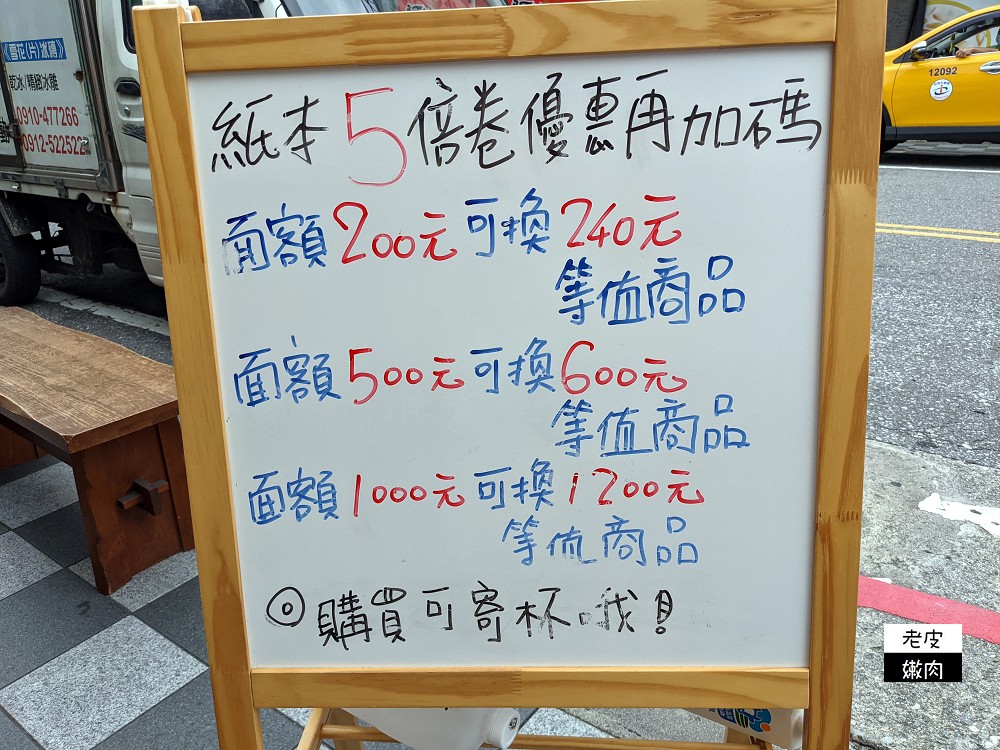 紙本5倍卷優惠再加碼
面額200元可換240元
等值商品
面額500元可換600元
等值商品
面額1000元可換1200元
等值商品
◎購買可寄杯哦!
《雪花(片)冰磚》
乾冰/精緻冰雕
0910-477266
0912-522522
12092
老皮
嫩肉